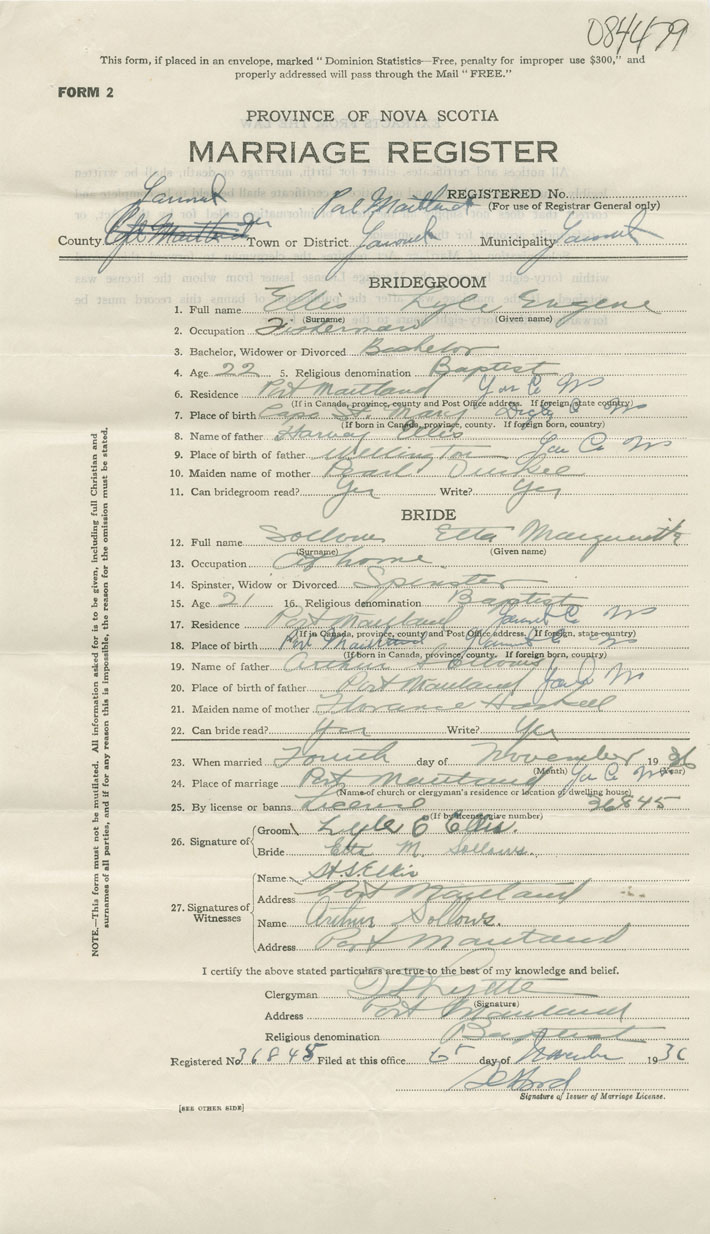 084479
This form, if placed in an envelope, marked "Dominion Statistics—Free, penalty for improper use $300," and
properly addressed will pass through the Mail "FREE."
FORM 2
PROVINCE OF NOVA SCOTIA
MARRIAGE REGISTER
REGISTERED No.
(For use of Registrar General only)
County Town or District Municipality
BRIDEGROOM
1. Full name Ellis Lyle Eugene
(Surname) (Given name)
2. Occupation Fisherman
3. Bachelor, Widower or Divorced Bachelor
4. Age 22 5. Religious denomination Baptist
6. Residence Port Maitland Yar Co NS
(If in Canada, province, county and Post Office address. If foreign, state country)
7. Place of birth Cape St. Mary Digby Co NS
(If born in Canada, province, county. If foreign born, country)
8. Name of father Harvey Ellis
9. Place of birth of father Wellington Yar Co NS
10. Maiden name of mother Pearl
11. Can bridegroom read? Yes Write? Yes
BRIDE
12. Full name Sollows Etta Marguerite
(Surname) (Given name)
13. Occupation At home
14. Spinster, Widow or Divorced Spinster
15. Age 21 16. Religious denomination Baptist
17. Residence Port Maitland Co NS
(If in Canada, province, county and Post Office address. If foreign, state country)
18. Place of birth Port Maitland Co NS
(If born in Canada, province, county. If foreign born, country)
19. Name of father Arthur Sollows
20. Place of birth of father Port Maitland Yar Co NS
21. Maiden name of mother Florance Haskell
22. Can bride read? Yes Write? Yes
23. When married Fourth day of November 1936
(Month) (Year)
24. Place of marriage Port Maitland Yar Co NS
(Name of church or clergyman's residence or location of dwelling house)
25. By license or banns License 36845
(If by license, give number)
26. Signature of
Groom Lyle E Ellis.
Bride Etta M. Sollows.
27. Signatures of Witnesses
Name
Address Port Maitland
Name Arthur Sollows.
Address Port Maitland
I certify the above stated particulars are true to the best of my knowledge and belief.
Clergyman
(Signature)
Address Port Maitland
Religious denomination Baptist
Registered No. 36845 Filed at this office day of November 1936
Signature of Issuer of Marriage License.
[SEE OTHER SIDE]
NOTE.—This form must not be mutilated. All information asked for is to be given, including full Christian and
surnames of all parties, and if for any reason this is impossible, the reason for the omission must be stated.